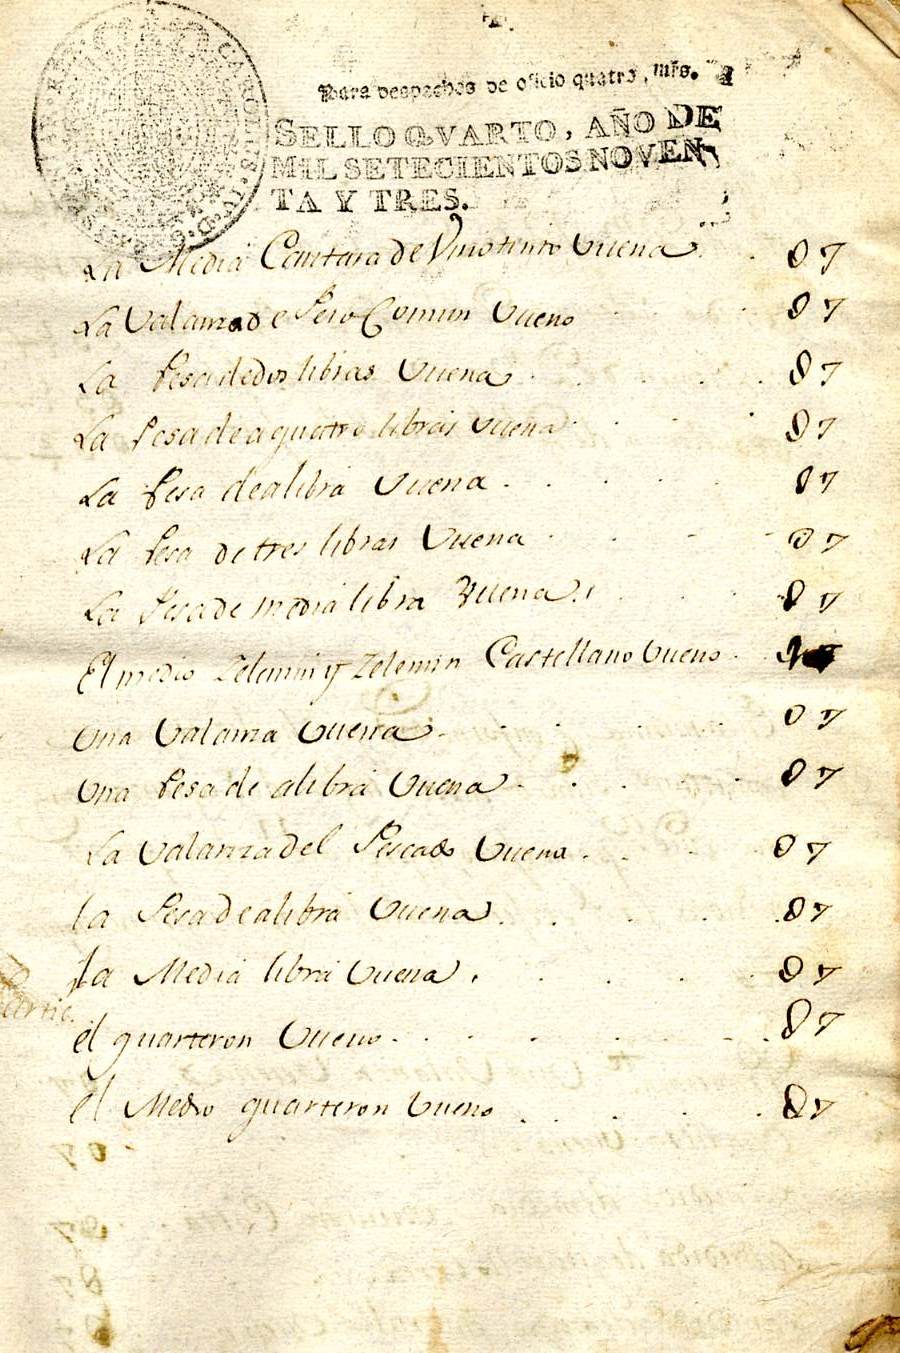 Para despachos de oficio quatro, mrs.
SELLO QVARTO, AÑO DE
MIL SETECIENTOS NOVEN-
TA Y TRES.
CAROLUS IV D. G. HISPANIAR. REX
La Media Cantara de Vino tinto buena . 87
La Valanza de Peso Comun bueno . . 87
La Pesa de dos libras buena . . . 87
La Pesa de a quatro libras buena . . . 87
La Pesa de a libra buena . . . 87
La Pesa de tres libras buena . . . 87
La Pesa de media libra buena . . . 87
El medio Zelemin y Zelemin Castellano bueno . 87
Una Valanza buena . . . 87
Una Pesa de a libra buena . . . 87
La Valanza del Pescado buena . . . 87
la Pesa de a libra buena . . . 87
la Media libra buena . . . 87
el quarteron bueno . . . 87
el Medio quarteron bueno . . . 87